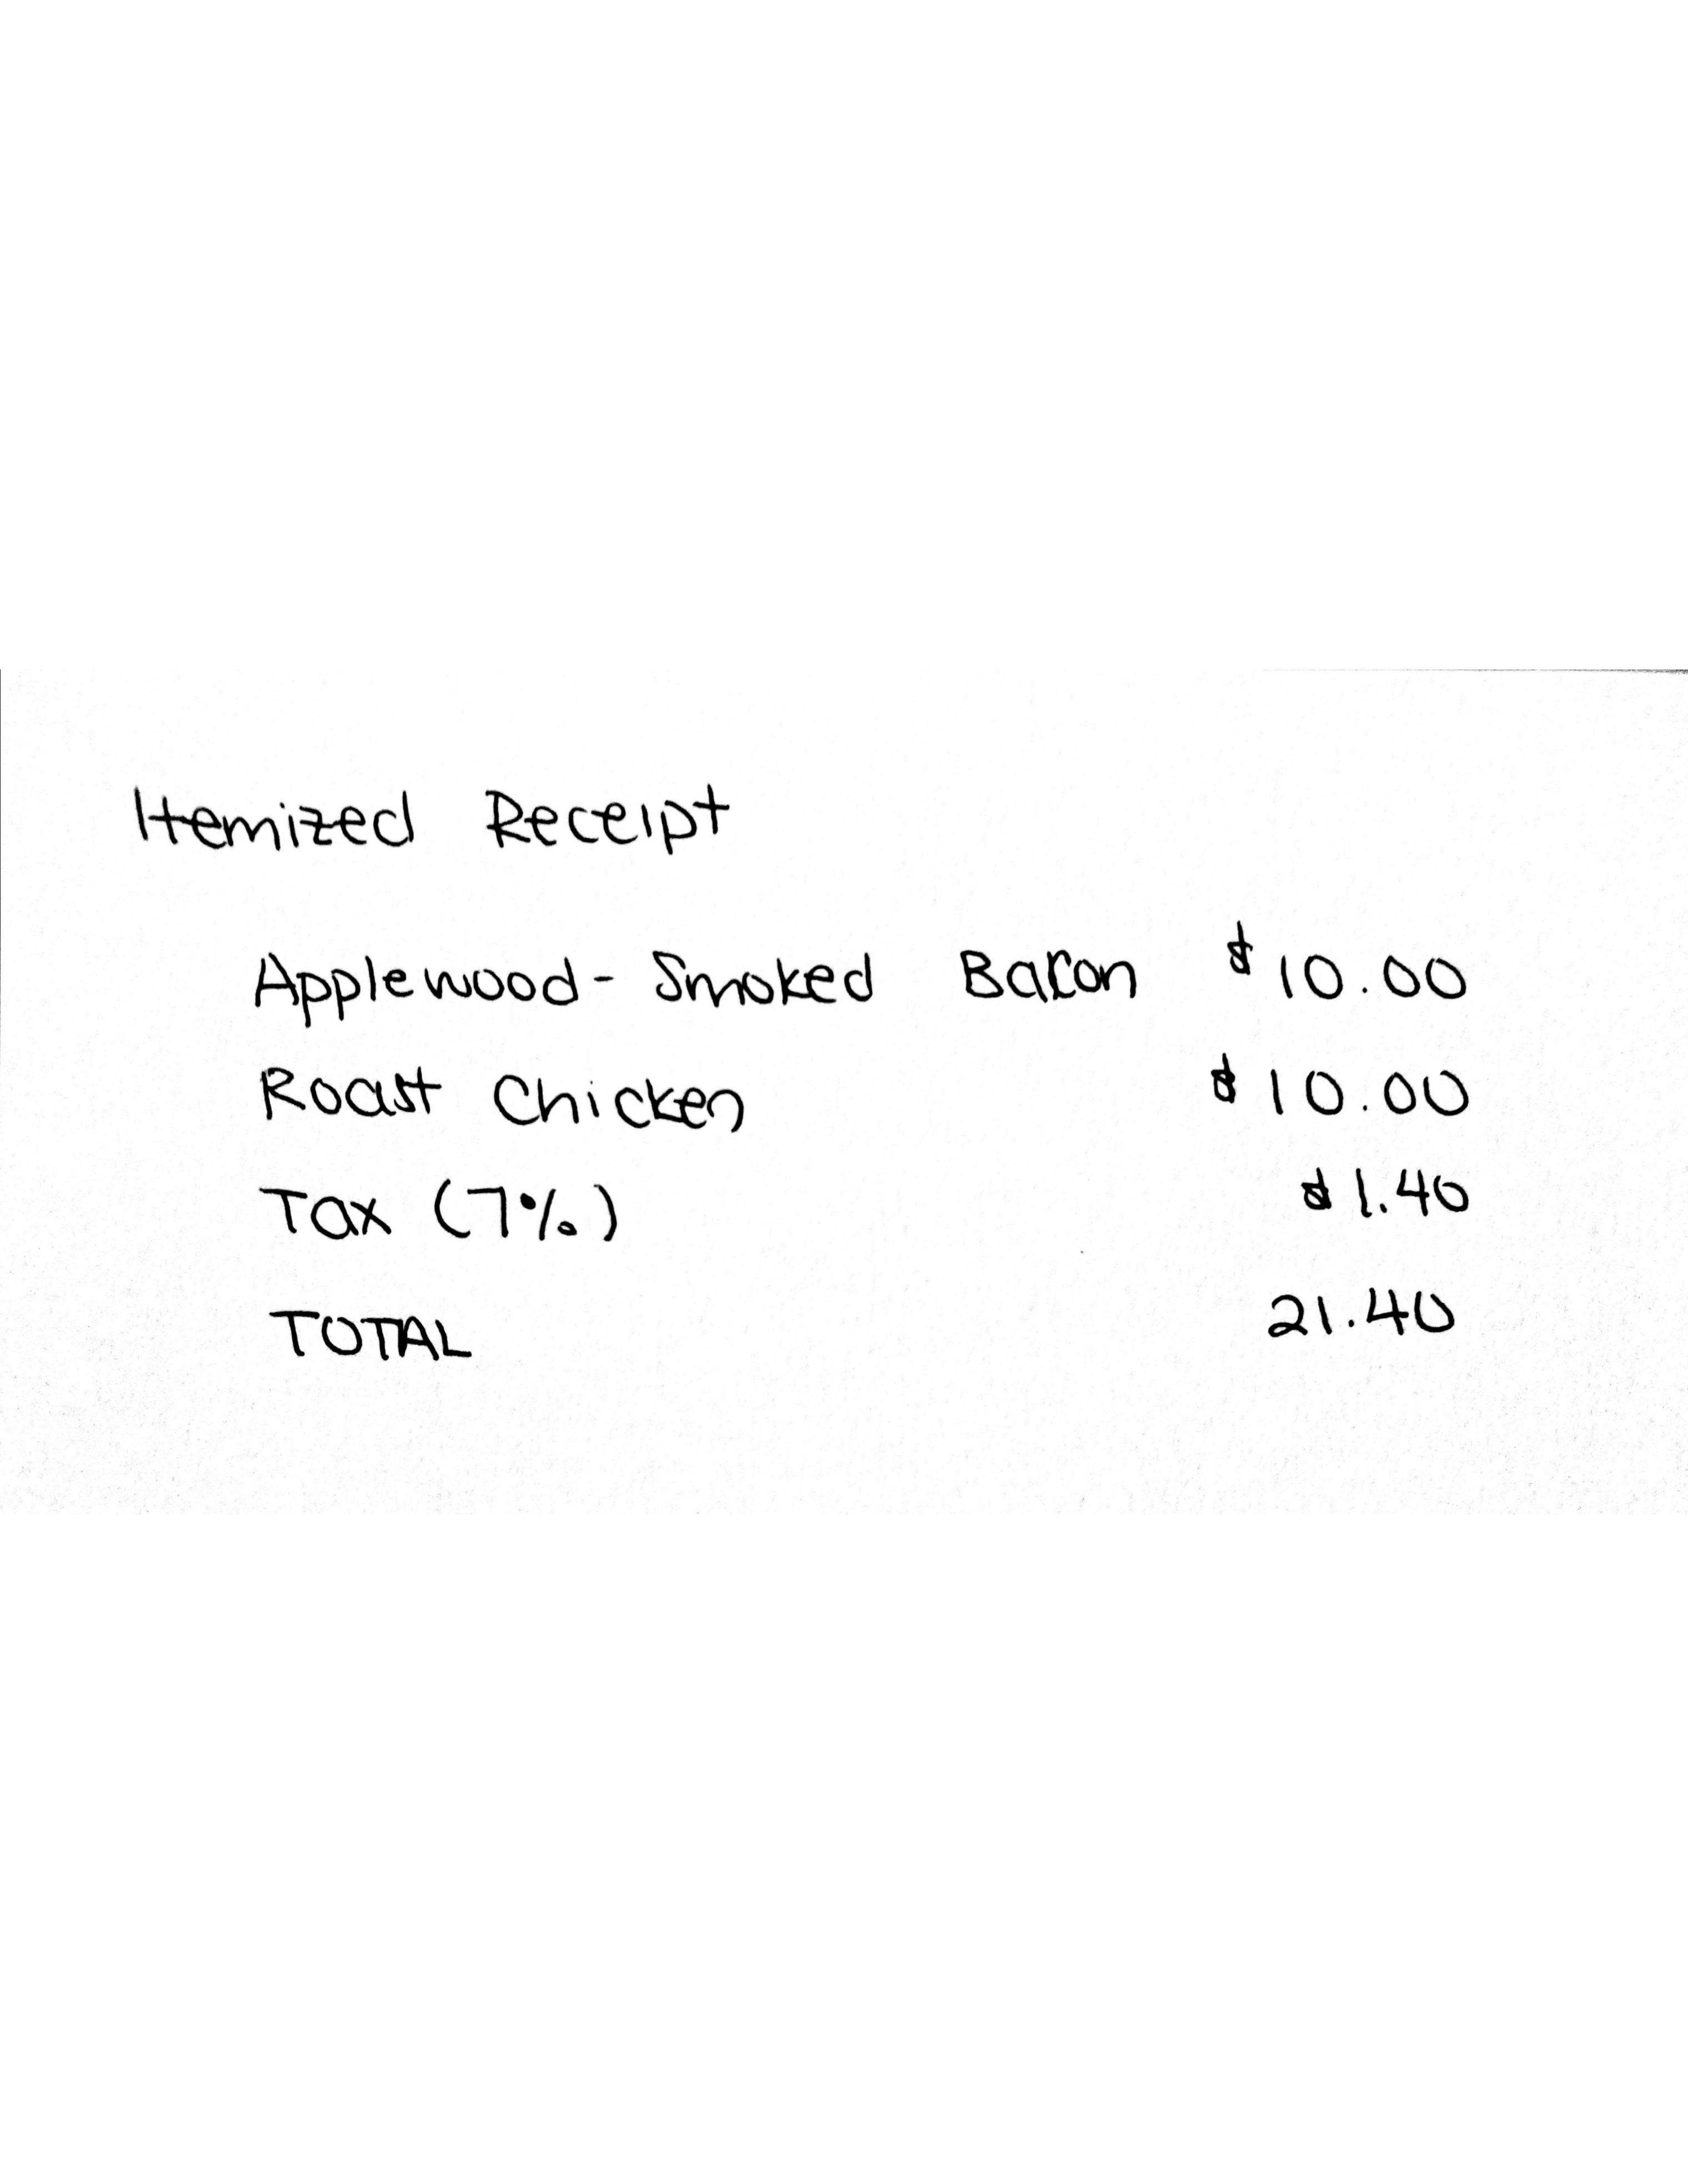 Itemized Receipt
Applewood-Smoked Bacon $10.00
Roast Chicken $10.00
Tax (7%) $1.40
TOTAL 21.40